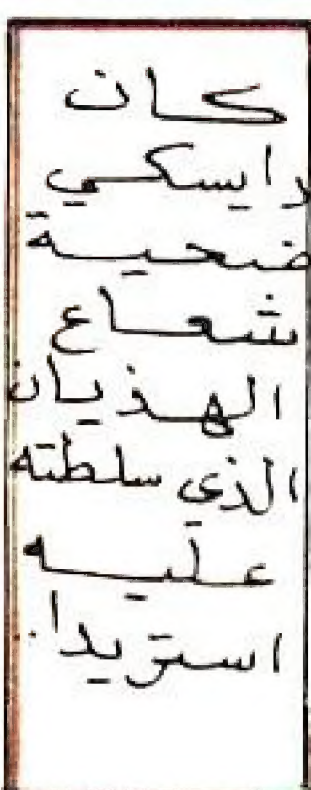 كان
رايسكي
ضحية
شعاع
الهذيان
الذي سلطته
عليه
استريدا.